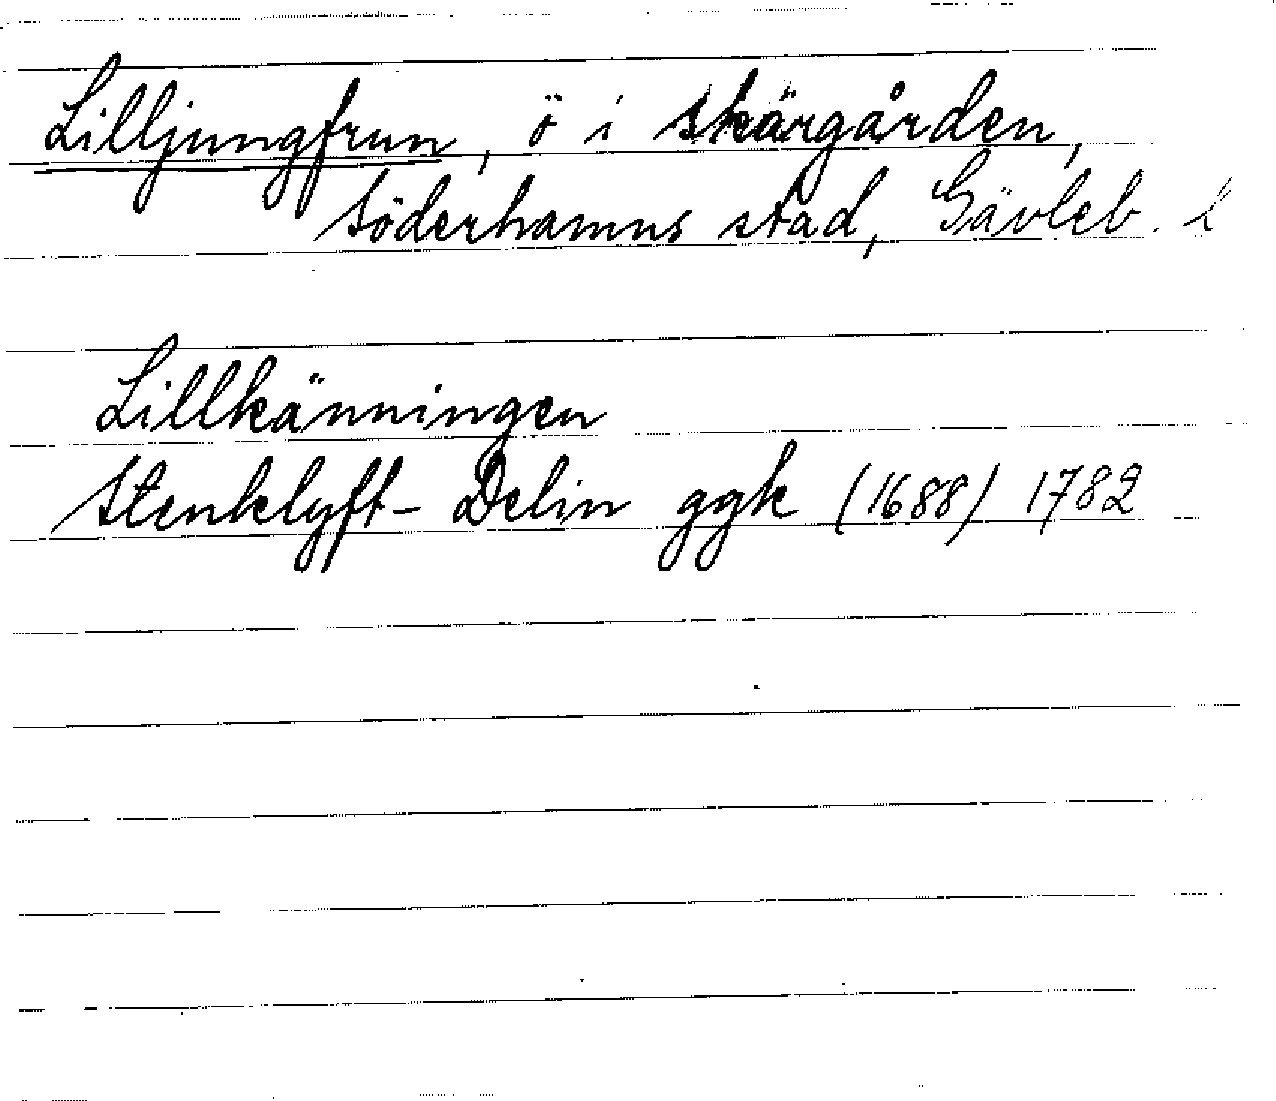 Lilljungfrun, ö i skärgården,
Söderhamns stad, Gävleb. l
Lillkänningen
Stenklyft-Delin ggk (1688) 1782